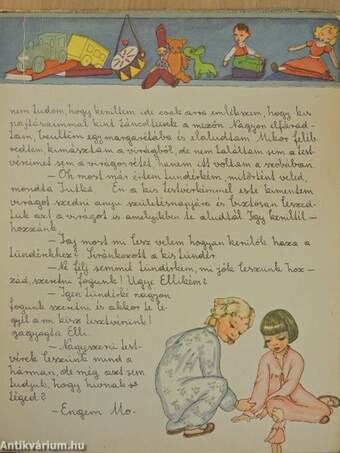 nem tudom, hogy kerültem ide csak arra emlékszem, hogy kis
pajtásaimmal kint táncoltunk a mezőn. Nagyon elfárad-
tam, beültem egy margarétába és elaludtam. Mikor feléb-
redtem, kimásztam a virágból, de nem találtam sem a test-
véreimet sem a virágos rétet, hanem itt voltam a szobában.
— Óh most már értem tündérkém, mi történt veled,
mondta Jutka. Én a kis testvérkémmel este kimentem
virágot szedni anyu születésnapjára és biztosan leszed-
tük azt a virágot is amelyikben te aludtál. Így kerültél
hozzánk.
— Jaj most mi lesz velem hogyan kerülök haza a
tündérekhez? Siránkozott a kis tündér.
— Ne félj semmit tündérkém, mi jók leszünk hoz-
zád, szeretni fogunk! Ugye Ellikém?
— Igen tündérke nagyon
fogunk szeretni és akkor te le-
gyél a mi kisz tesztvérünk!
gagyogta Elli.
— Nagyszerű test-
vérek leszünk mind a
hárman, de még azt sem
tudjuk, hogy hívnak
téged?
— Engem Mo-
Antikvárium.hu